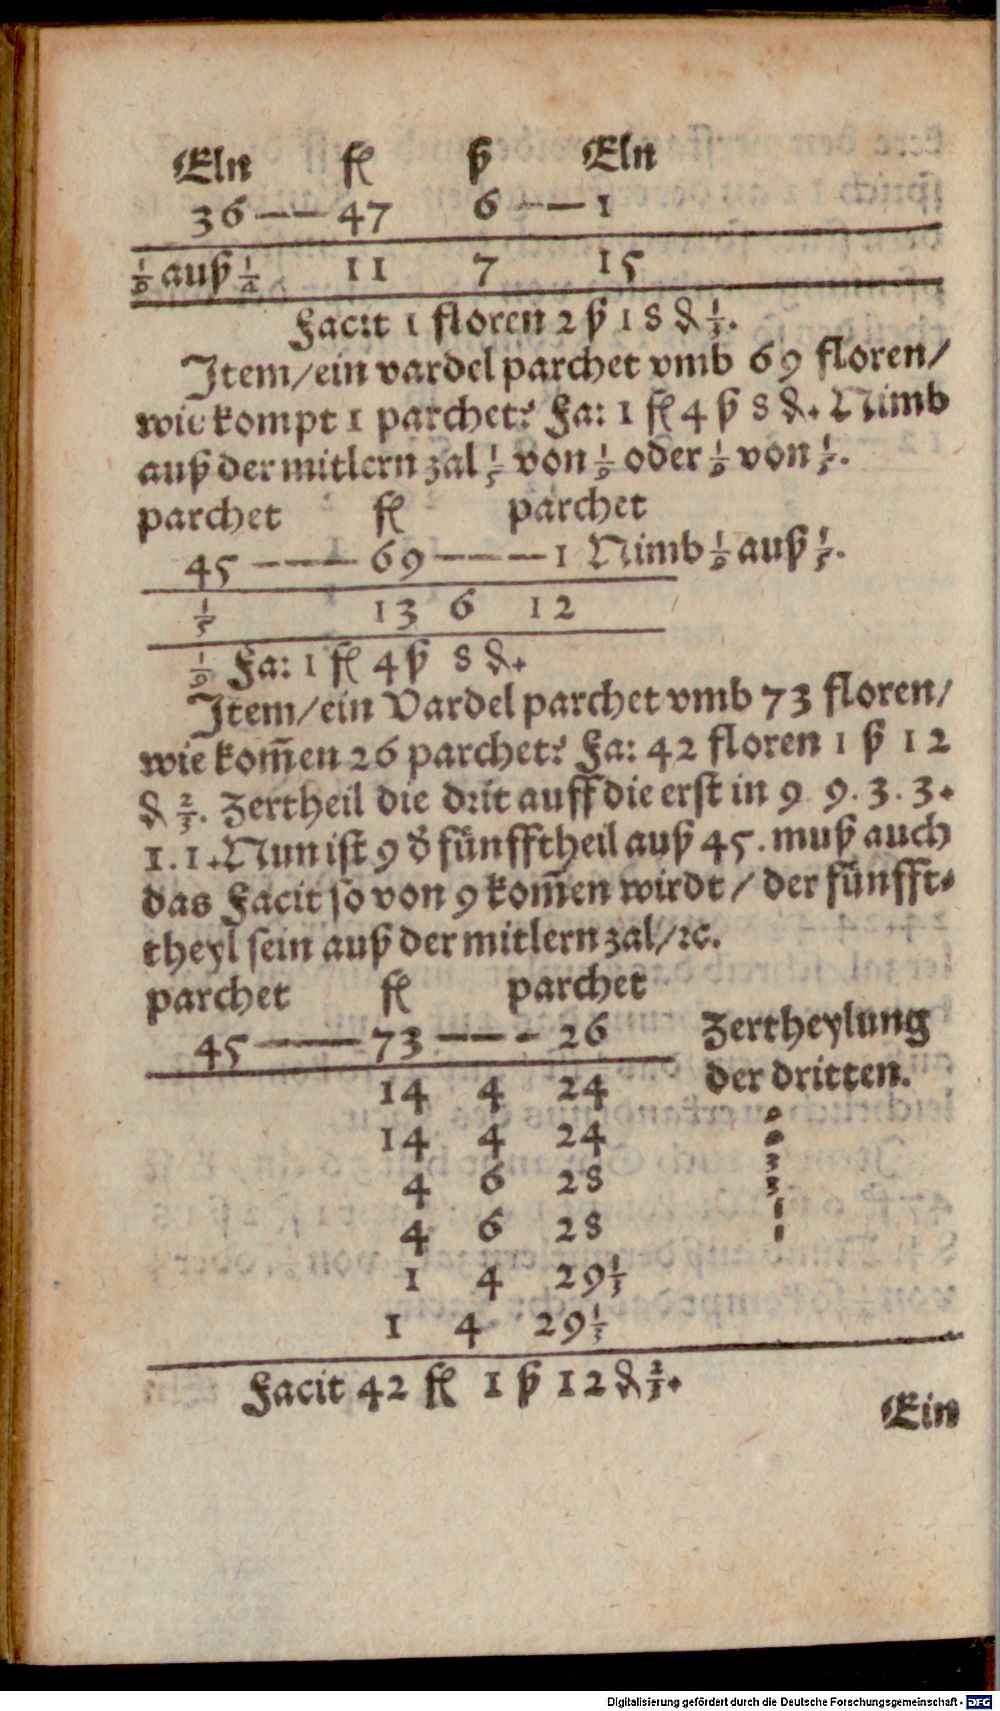 Eln fl ß Eln
36 — — 47 6 — — 1
1/9 auß 1/4 11 7 15
Facit 1 floren 2 ß 18 ₰ 1/3.
Item/ein vardel parchet vmb 69 floren/
wie kompt 1 parchet? Fa: 1 fl 4 ß 8 ₰. Nimb
auß der mitlern zal 1/5 von 1/9 oder 1/9 von 1/5.
parchet fl parchet
45 — — — 69 — — — 1 Nimb 1/9 auß 1/5.
1/5 13 6 12
1/9 Fa: 1 fl 4 ß 8 ₰.
Item/ein Vardel parchet vmb 73 floren/
wie kom̄en 26 parchet? Fa: 42 floren 1 ß 12
₰ 2/3. Zertheil die drit auff die erst in 9 9. 3. 3.
1. 1. Nun ist 9 d̄ fünfftheil auß 45. muß auch
das Facit so von 9 kom̄en wirdt / der fünfft-
theyl sein auß der mitlern zal/ꝛc.
parchet fl parchet
45 — — — 73 — — - 26 Zertheylung
der dritten.
14 4 24 9
14 4 24 9
4 6 28 3
4 6 28 3
1 4 29 1/3 1
1 4 29 1/3 1
Facit 42 fl 1 ß 12 ₰ 2/3.
Ein
Digitalisierung gefördert durch die Deutsche Forschungsgemeinschaft - DFG